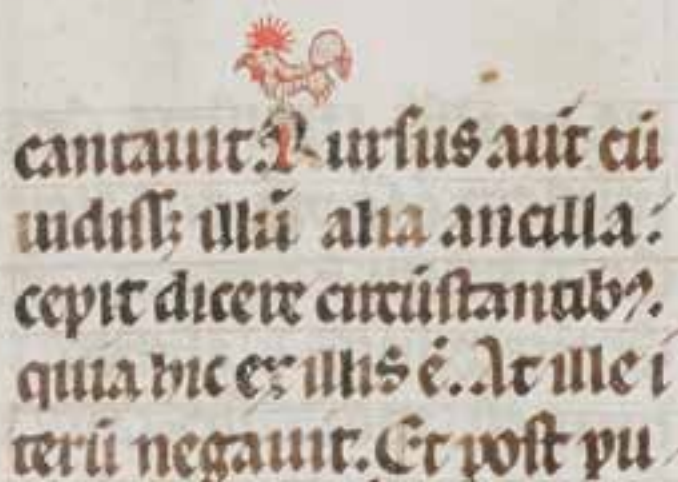 cantauit. Rursus aut̄ cū
uidiss; illū alia ancilla:
cepit dicere circūstantibꝰ.
quia hic ex illis ē. At ille i
terū negauit. Et post pu